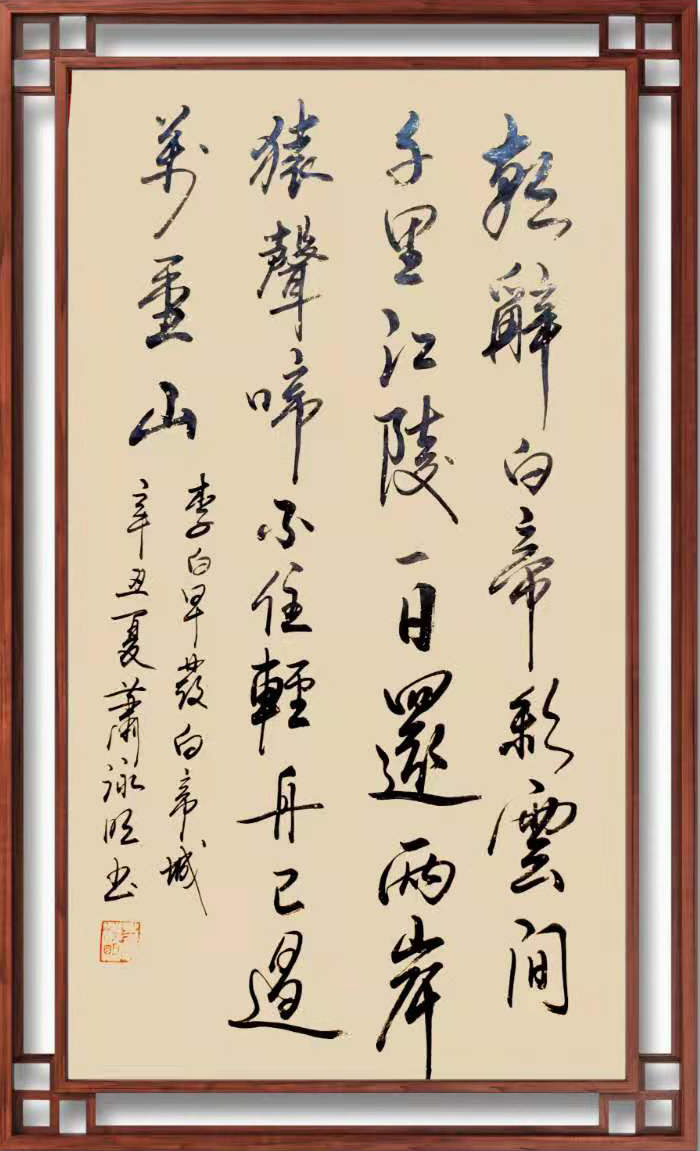 朝辭白帝彩雲間
千里江陵一日還兩岸
猿聲啼不住輕舟已過
萬重山
李白早發白帝城
辛丑夏蕭書